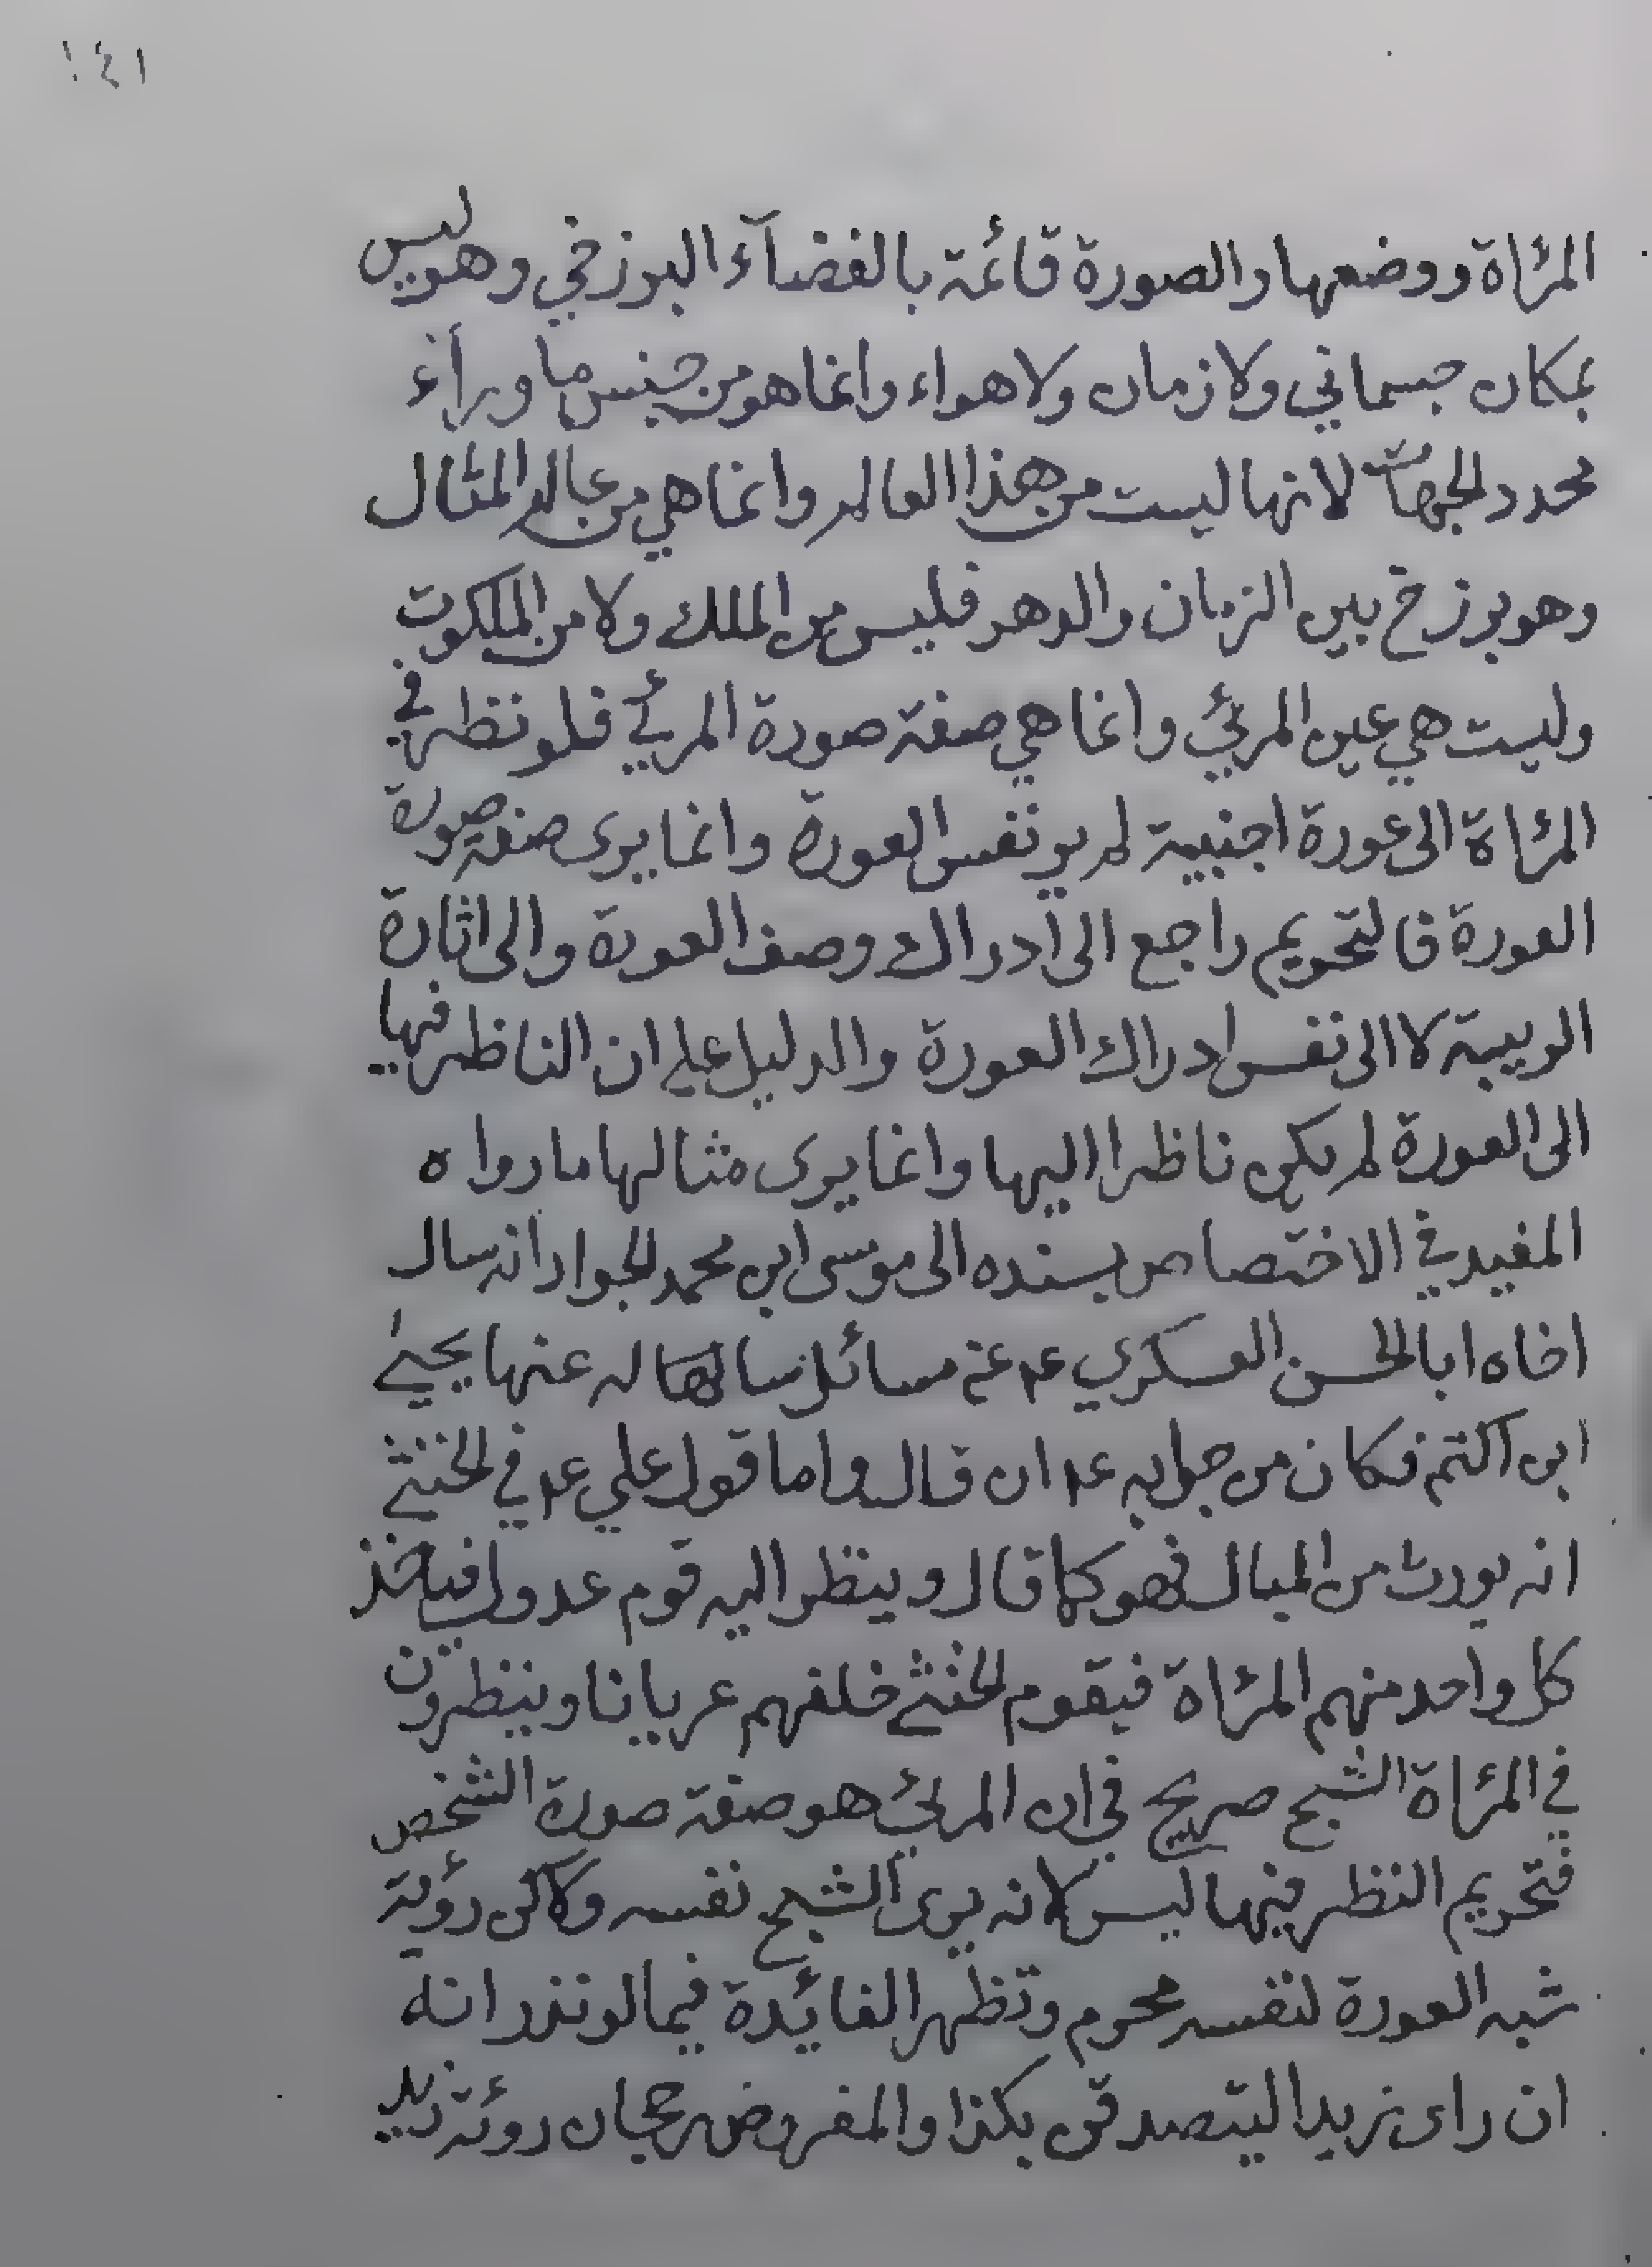 ١٤١
المرٔاة ووضعها والصورة قائمة بالفضآء البرزخي وهو ليس
بمكان جسماني ولا زمان ولا هواء وانما هو من جنس ما ورآء
محدد الجهات لانها ليست من هذا العالم وانما هي من عالم المثال
وهو برزخ بين الزمان والدهر فليس من الملك ولا من الملكوت
وليست هي عين المرئي وانما هي صفة صورة المرئي فلو نظر في
المرٔاة الى عورة اجنبية لم ير نفس العورة وانما يرى صفة صورة
العورة فالتحريم راجع الى ادراك وصف العورة والى اثارة
الريبة لا الى نفس ادراك العورة والدليل على ان الناظر فيها
الى العورة لم يكن ناظرا اليها وانما يرى مثالها ما رواه
المفيد في الاختصاص بسنده الى موسى ابن محمد الجواد انه سال
اخاه ابا الحسن العسكري عہ عن مسائل سالها له عنها يحيىٰ
ابن اكتم فكان من جوابه عہ ان قال واما قول علي عہ في الخنثى
انه يورث من المبال فهو كما قال وينظر اليه قوم عدول فياخذ
كل واحد منهم المرٔاة فيقوم الخنثى خلفهم عريانا وينظرون
في المرٔاة الشبح صريح في ان المرئي هو صفة صورة الشخص
فتحريم النظر فيها ليس لانه يرى الشبح نفسه ولاكن رؤية
شبه العورة لنفسه محرم وتظهر الفائدة فيما لو نذر انه
ان راى زيدا ليتصدقن بكذا والمفروض رجحان روئة زيد